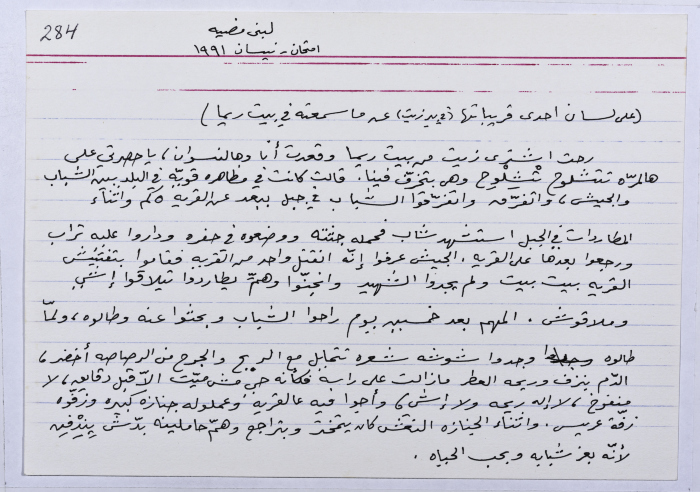 284
لبنى فضيه
امتحان - نيسان ١٩٩١
(على لسان احدى قريباتها (في بير زيت) عن ما سمعته في بيت ريما)
رحت اشتري زيت من بيت ريما وقعدت أنا وهالنسوان، يا حصرتي على
هالمره تتشلوح تْشِلْوح وهي بتخرّف فينا. قالت كانت في مظاهره قويّه في البلد بين الشباب
والجيش، واتفرّقو واتفرّقوا الشباب في جبل ببعد عن القريه ٥ كم واثناء
المطاردات في الجبل استشهد شاب فحمله جثته ووضعوه في حفره وداروا عليه تراب
ورجعوا بعدها على القريه. الجيش عرفوا إنّه انقتل واحد من القريه فقاموا بتفتيش
القريه بيت بيت ولم يجدوا الشهيد وانجنّوا وهمّ يطاردوا تيلاقوا إشي
وملاقوش. المهم بعد خمسين يوم راحوا الشباب وبحثوا عنه وطالوه، ولمّا
طالوه وجدوا شوشة شعره تتمايل مع الريح والجرح من الرصاصه أخضر،
الدّم ينزف وريحه العطر مازالت على راسه فكأنه حيّ مش ميّت الاّ قبل دقايق، لا
منفوخ، لا إله ريحه ولا إشي، وأجوا فيه عالقريه وعملوله جنازه كبيره وزفّوه
زفّة عريس. واثناء الجنازه النعش كان يتمختر وبتراجع وهمّ حاملينه بدّش يندفن
لأنّه بعز شبابه وبحب الحياه.